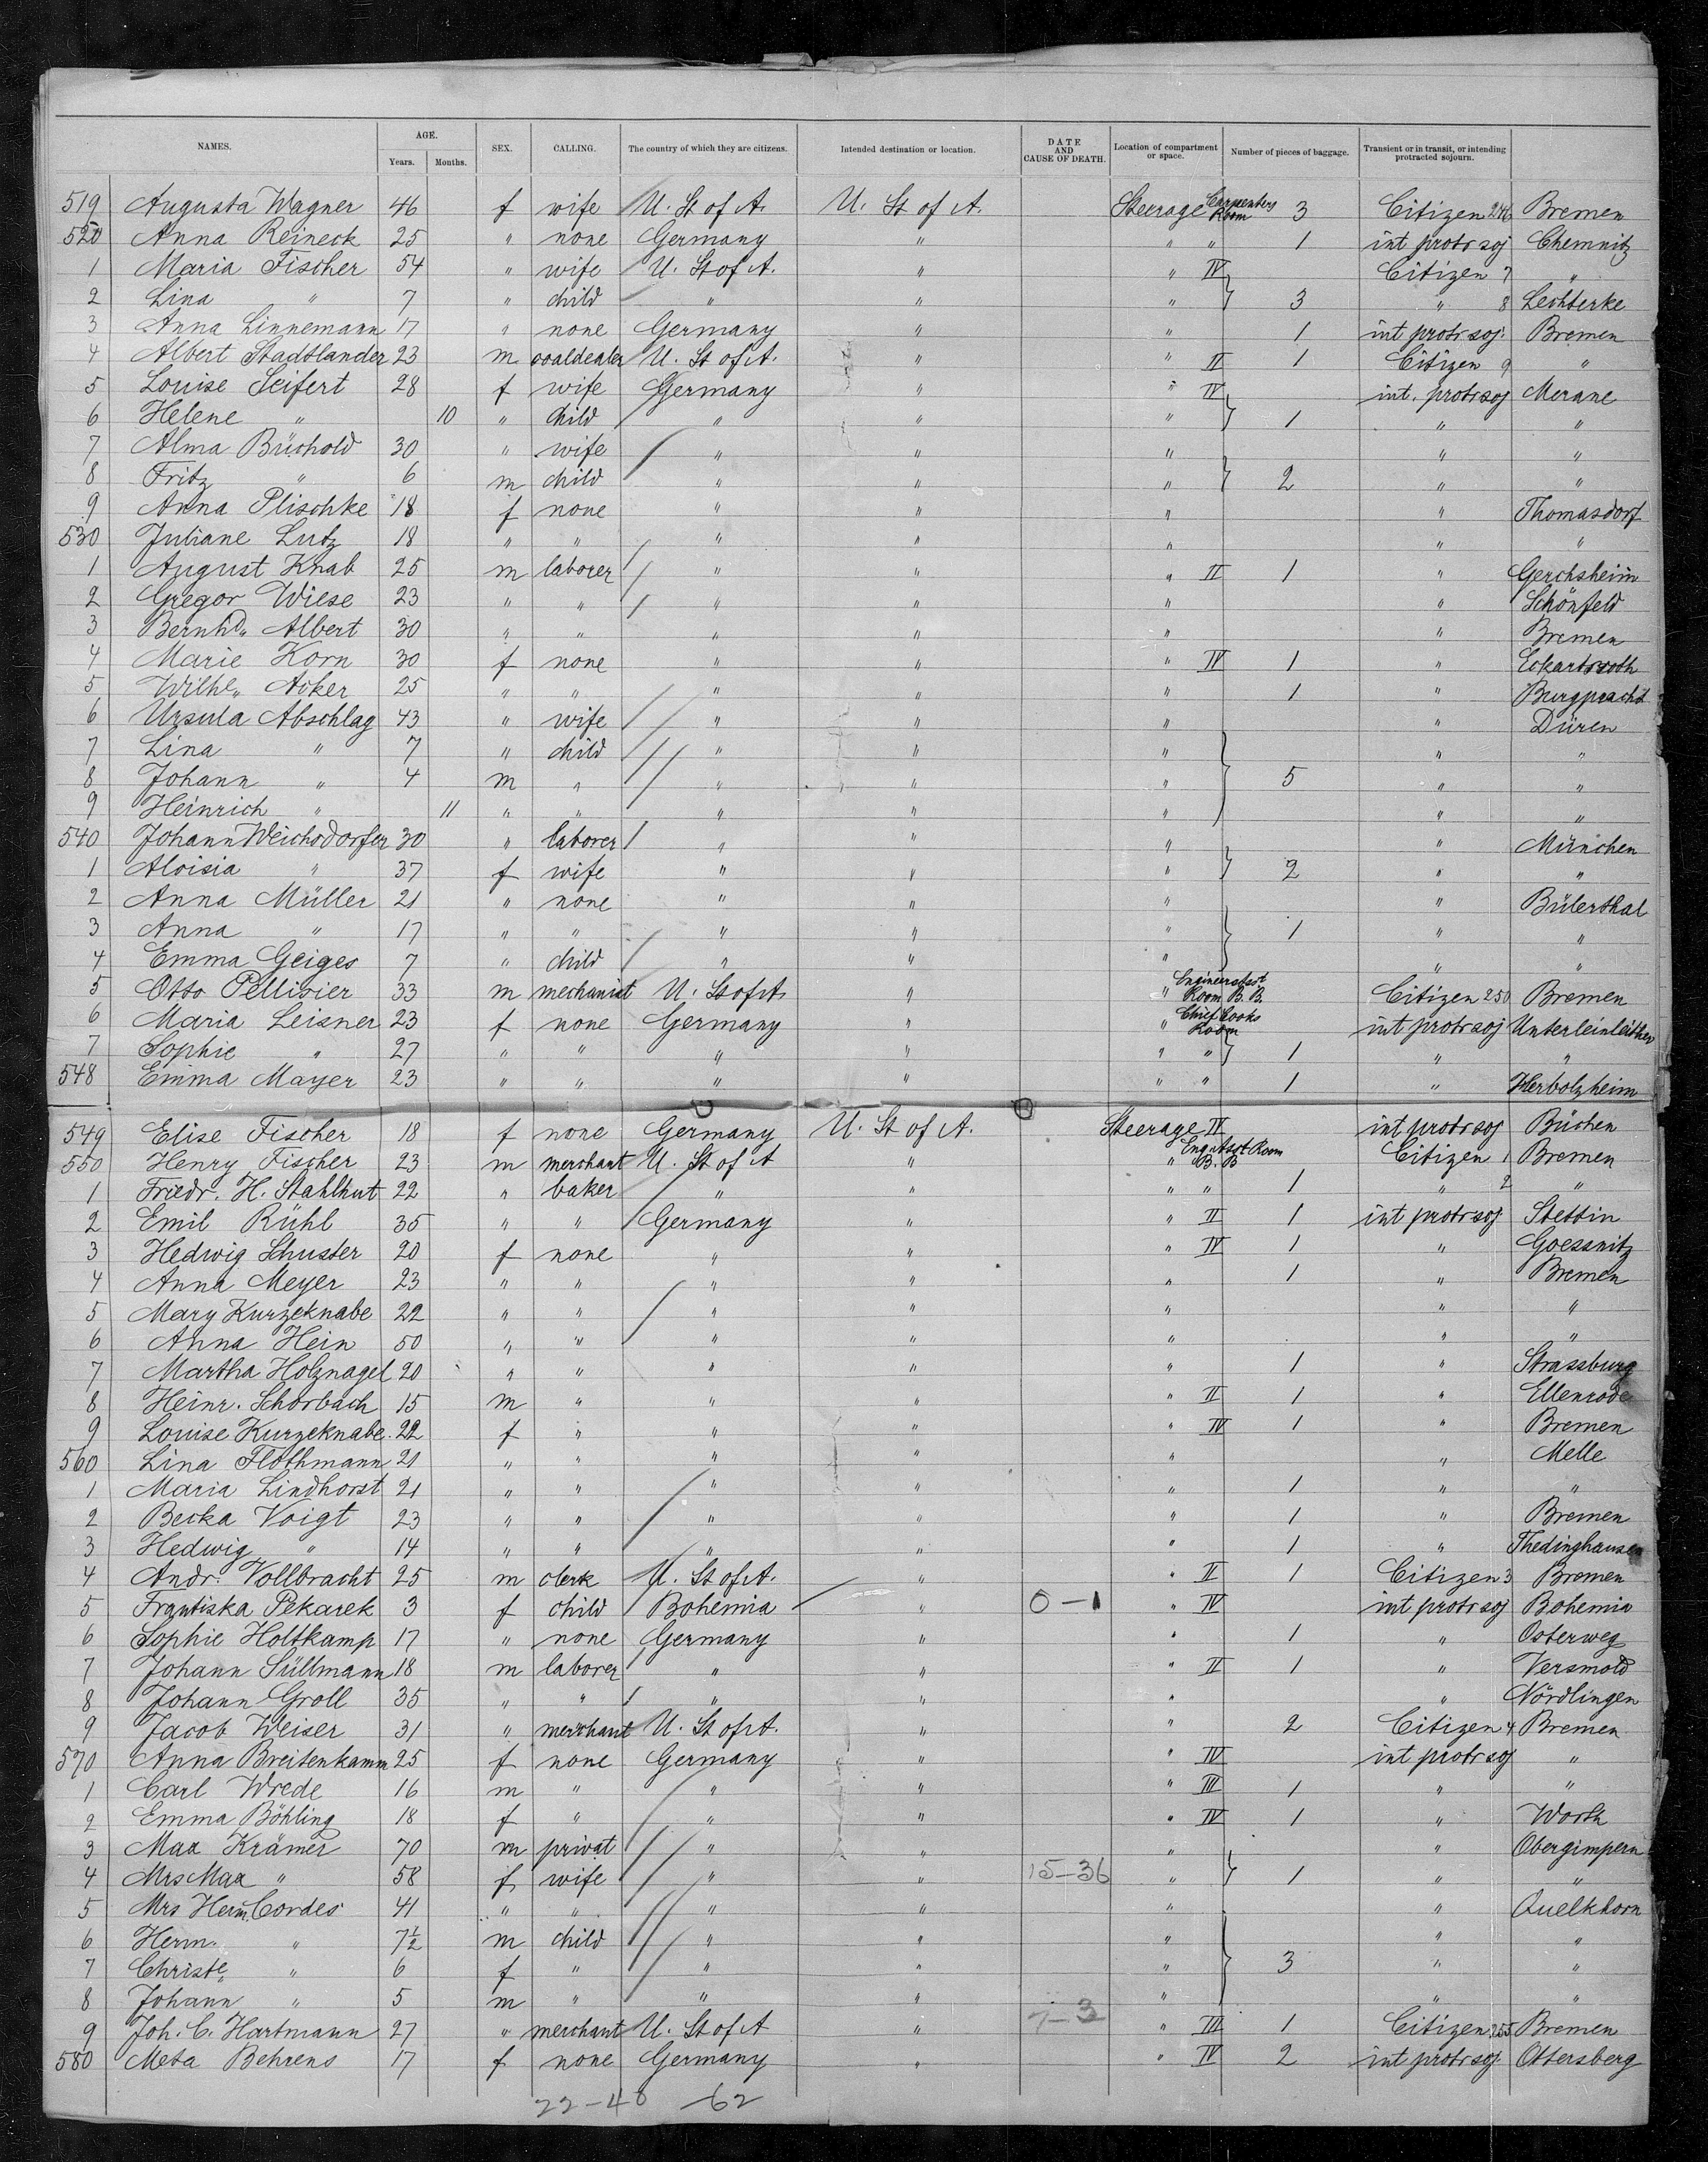 NAMES. AGE. Years. Months. SEX. CALLING. The country of which they are citizens. Intended destination or location. DATE AND CAUSE OF DEATH. Location of compartment or space. Number of pieces of baggage. Transient or in transit, or intending protracted sojourn.
519 Augusta Wagner 46 f wife U. St of A. U. St of A. Steerage Carpenters Room 3 Citizen 246 Bremen
520 Anna Reineck 25 " none Germany " " " 1 int protr soj Chemnitz
1 Maria Fischer 54 " wife U. St of A. " " IV Citizen 7 "
2 Lina " 7 " child " " " 3 " 8 Lechterke
3 Anna Linnemann 17 " none Germany " " 1 int protr soj. Bremen
4 Albert Stadtlander 23 m coaldealer U. St of A. " " II 1 Citizen 9 "
5 Louise Seifert 28 f wife Germany " " IV int. protr soj Merane
6 Helene " 10 " child " " " 1 " "
7 Alma Büchold 30 " wife " " " " "
8 Fritz " 6 m child " " " 2 " "
9 Anna Plischke 18 f none " " " " Thomasdorf
530 Juliane Lutz 18 " " " " " " "
1 August Knab 25 m laborer " " " II 1 " Gerchsheim
2 Gregor Wiese 23 " " " " " " Schönfeld
3 Bernhd. Albert 30 " " " " " " Bremen
4 Marie Korn 30 f none " " " IV 1 " Eckartsroth
5 Wilhe. Acker 25 " " " " " 1 "
6 Ursula Abschlag 43 " wife " " " " Düren
7 Lina " 7 " child " " " " "
8 Johann " 4 m " " " " 5 " "
9 Heinrich " 11 " " " " " " "
540 Johann Weichsdorfer 30 " laborer " " " " München
1 Aloisia " 37 f wife " " " 2 " "
2 Anna Müller 21 " none " " " " Bülerthal
3 Anna " 17 " " " " " 1 " "
4 Emma Geiges 7 " child " " " " "
5 Otto Pellisier 33 m mechanist U. St of A. " " Engineersasst Room B. B. Citizen 250 Bremen
6 Maria Leisner 23 f none Germany " " Chief Cooks Room int protr soj Unterleinleither
7 Sophie " 27 " " " " " " 1 " "
548 Emma Mayer 23 " " " " " " 1 " Herbolzheim
549 Elise Fischer 18 f none Germany U. St of A. Steerage IV int protr soj Büchen
550 Henry Fischer 23 m merchant U. St of A " " Eng Asst Room B. B Citizen 1 Bremen
1 Friedr. H. Stahlhut 22 " baker " " " " 1 " 2 "
2 Emil Rühl 35 " " Germany " " II 1 int protr soj. Stettin
3 Hedwig Schuster 20 f none " " " IV 1 " Goessnitz
4 Anna Meyer 23 " " " " " 1 " Bremen
5 Mary Kurzeknabe 22 " " " " " " "
6 Anna Hein 50 " " " " " " "
7 Martha Holznagel 20 " " " " " 1 " Strassburg
8 Heinr. Schorbach 15 m " " " " II 1 " Ellenrode
9 Louise Kurzeknabe 22 f " " " " IV 1 " Bremen
560 Lina Flothmann 21 " " " " " " Melle
1 Maria Lindhorst 21 " " " " " 1 " "
2 Becka Voigt 23 " " " " " 1 " Bremen
3 Hedwig " 14 " " " " " 1 " Thedinghausen
4 Andr. Vollbracht 25 m clerk U. St of A. " " II 1 Citizen 3 Bremen
5 Frantiska Pekarek 3 f child Bohemia " 0-1 " IV int protr soj Bohemia
6 Sophie Holtkamp 17 " none Germany " " 1 " Osterweg
7 Johann Süllmann 18 m laborer " " " II 1 " Versmold
8 Johann Groll 35 " " " " " " Nördlingen
9 Jacob Weiser 31 " merchant U. St of A. " " 2 Citizen 4 Bremen
570 Anna Breitenkamm 25 f none Germany " " IV int protr soj "
1 Carl Wrede 16 m " " " " III 1 " "
2 Emma Böhling 18 f " " " " IV 1 " Worth
3 Max Krämer 70 m privat " " " " Obergimpern
4 Mrs Max " 58 f wife " " 15-36 " 1 " "
5 Mrs Herm. Cordes 41 " " " " " " Quelkhorn
6 Herm. " 7½ m child " " " " "
7 Christe. " 6 f " " " " 3 " "
8 Johann " 5 m " " " " " "
9 Joh. C. Hartmann 27 " merchant U. St of A " 7-3 " III 1 Citizen 255 Bremen
580 Meta Behrens 17 f none Germany " " IV 2 int protr soj. Ottersberg
22-40 -62